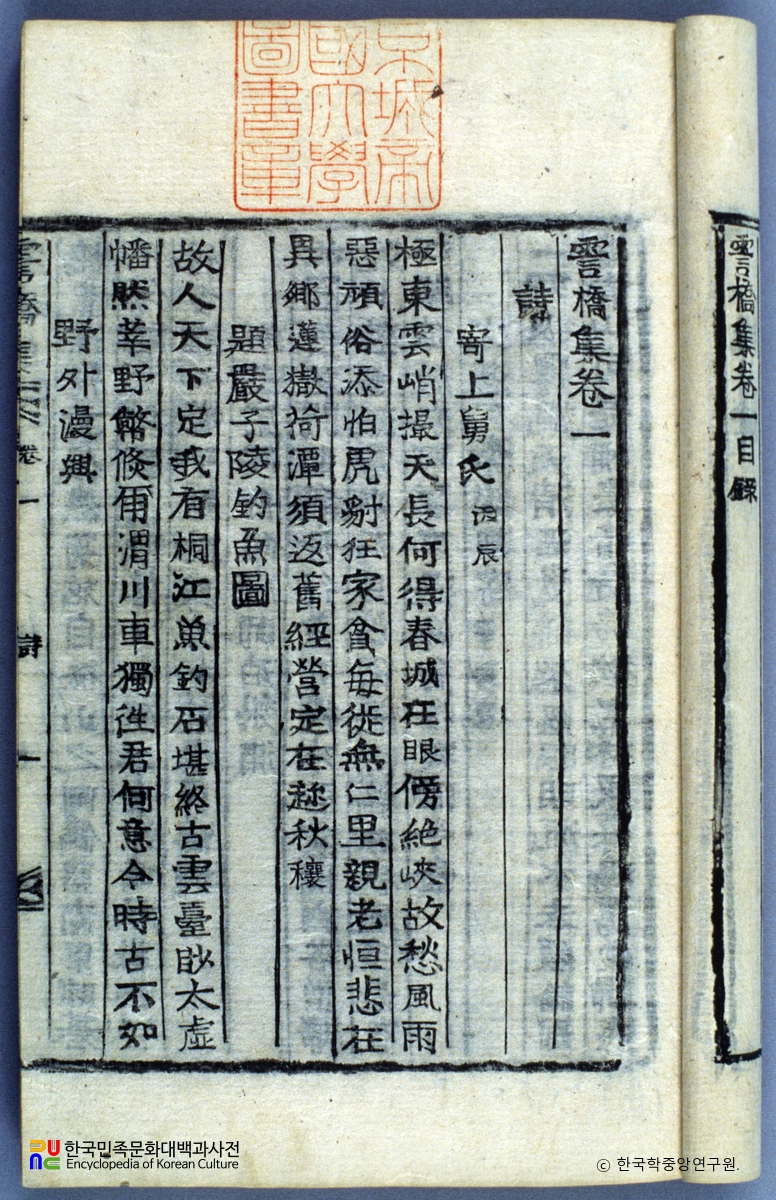 京城帝
國大學
圖書章
雲橋集卷一目錄
雲橋集卷一
詩
寄上舅氏 丙辰
極東雲峭撮天長何得春城在眼傍絶峽故愁風雨
惡頑俗添怕虎豺狂家貧每徙無仁里親老恒悲在
異鄉蓮嶽荷潭須返舊經營定在趂秋穰
題嚴子陵釣魚圖
故人天下定我有桐江魚釣石堪終古雲臺眇太虛
幡然莘野幣倐爾渭川車獨徃君何意今時古不如
野外漫興
雲橋集 卷一 詩 一
한국민족문화대백과사전
Encyclopedia of Korean Culture
ⓒ 한국학중앙연구원.